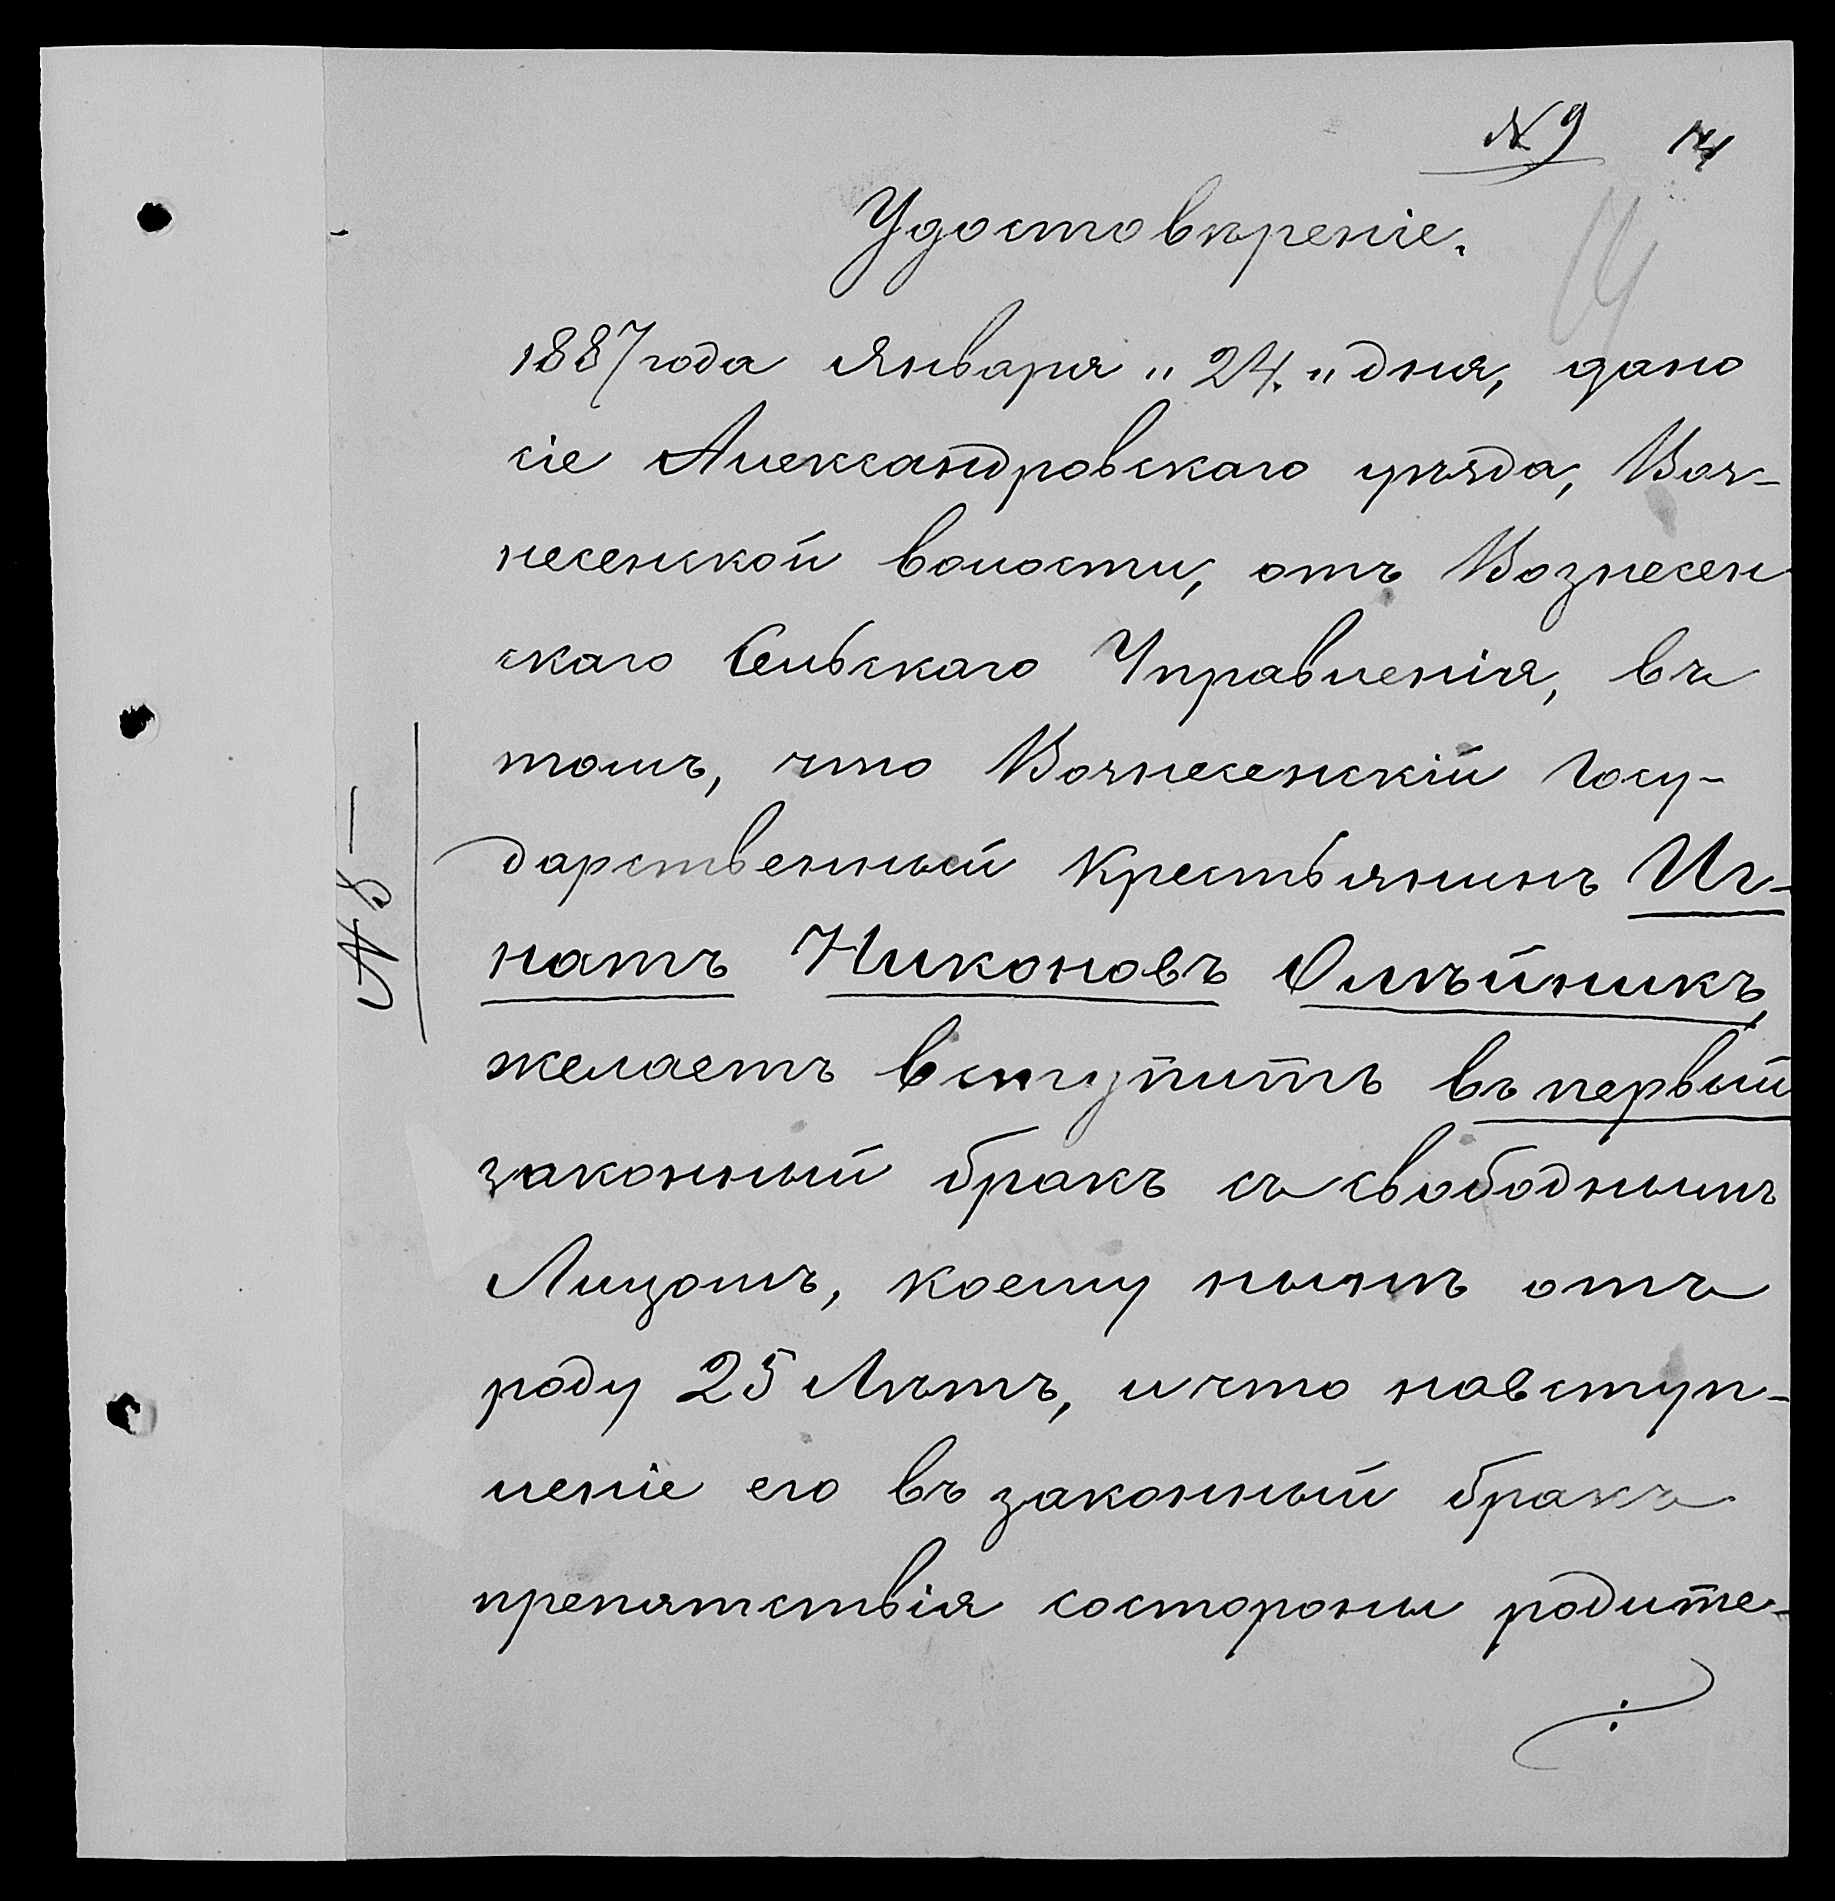 № 9 14
14
Удостовѣреніе.
1887 года Января „ 24. " дня, дано
сіе Александровскаго уѣзда, Воз-
несенской волости, отъ Вознесен
скаго Сельскаго Управленія, въ
томъ, что Вознесенскій Госу-
дарственный Крестьянинъ Иг-
натъ Никоновъ Олѣйникъ,
желаетъ вступить въ первый
законный бракъ съ свободнымъ
Лицомъ, коему нынѣ отъ
роду 25 Лѣтъ, и что на вступ-
леніе его въ законный бракъ
препятствія со стороны родите-
№ 8 —